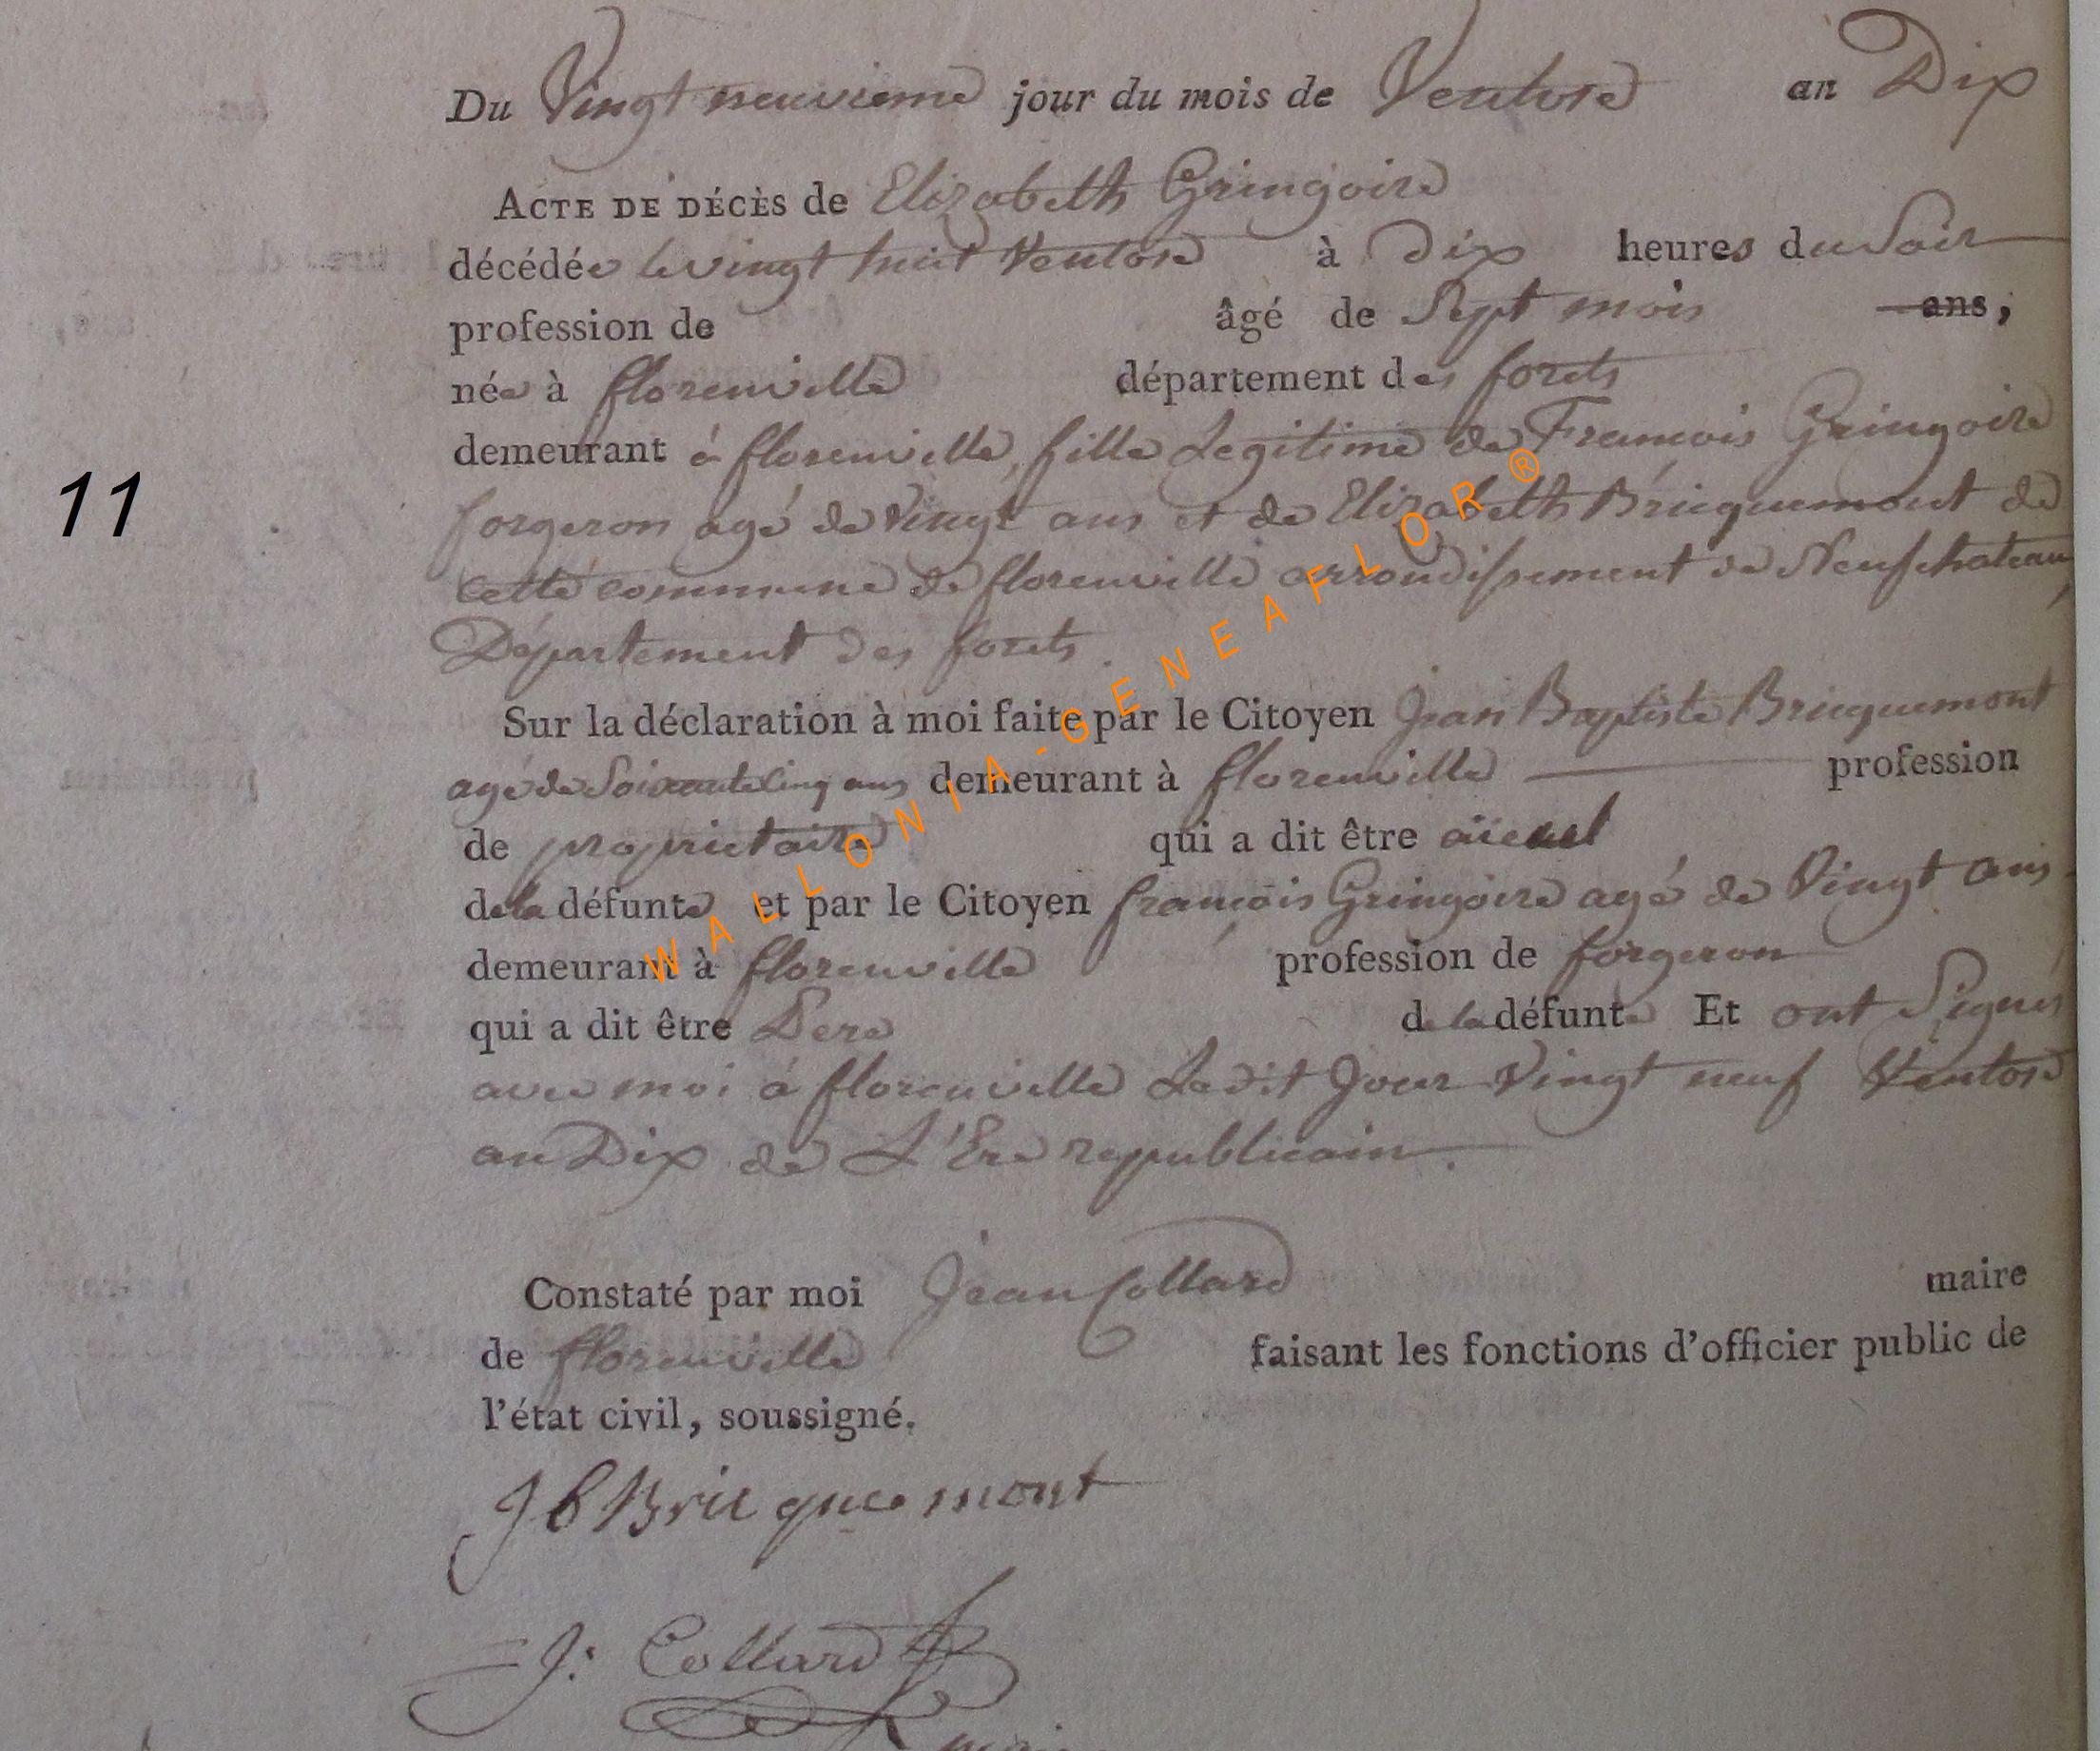 Du Vingt neuvieme jour du mois de Ventose an Dix
ACTE DE DÉCÈS de Elizabeth Gringoire
décédée le vingt huit Ventose à dix heures du Soir
profession de âgé de Sept mois ans,
née à florenville département des forets
demeurant á florenville, fille Legitime de Francois Gringoire
11
forgeron agé de Vingt ans et de Elizabeth Bricquemont de
cette commune de florenville arrondissement de Neufchateau,
Département des forets.
Sur la déclaration à moi faite par le Citoyen Jean Baptiste Bricquemont
agé de Soixante Cinq ans demeurant à florenville profession
de proprietaire qui a dit être aieul
de la défunte et par le Citoyen françois Gringoire agé de Vingt ans
demeurant à florenville profession de forgeron
qui a dit être Pere de la défunte Et ont Signés
avec moi á florenville Ledit Jour Vingt neuf Ventose
an Dix de L'Ere republicain.
Constaté par moi Jean Collard maire
de florenville faisant les fonctions d'officier public de
l'état civil, soussigné.
J b Bricquemont
J: Collard
WALLONIA-GENEAFLOR®